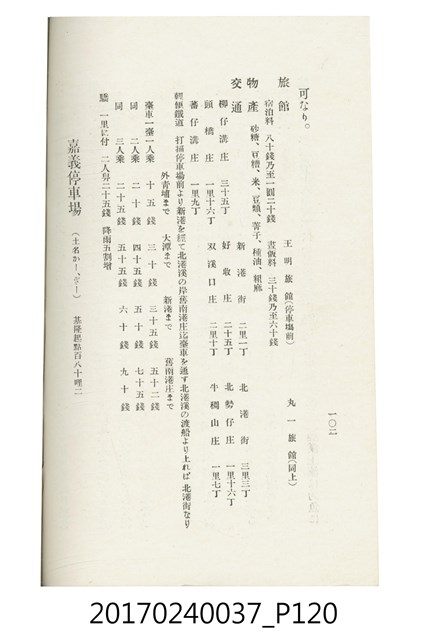 一〇二
可なり。
旅館 王明旅館(停車場前) 丸一旅館(同上)
宿泊料 八十錢乃至一圓二十錢 晝飯料 三十錢乃至六十錢
物產 砂糖、豆糟、米、豆類、菁子、種油、粗麻
交通
柳仔溝庄 三十五丁 新港街 二里一丁 北港街 三里三丁
頭橋庄 一里十六丁 好收庄 二十五丁 北勢仔庄 一里十六丁
蕃仔溝庄 一里九丁 双溪口庄 二里十丁 牛稠山庄 一里七丁
輕便鐵道 打猫停車場前より新港を經て北港溪の岸舊南港庄迄臺車を通す北港溪の渡船より上れば北港街なり
外靑埔まで 大潭まで 新港まで 舊南港庄まで
臺車一臺一人乘 十五錢 三十錢 三十五錢 五十二錢
同 二人乘 二十錢 四十五錢 五十錢 七十五錢
同 三人乘 二十五錢 五十五錢 六十錢 九十錢
轎 一里に付 二人舁二十五錢 降雨五割增
嘉義停車場 (土名かー、ぎー) 基隆起點百八十哩二
20170240037_P120